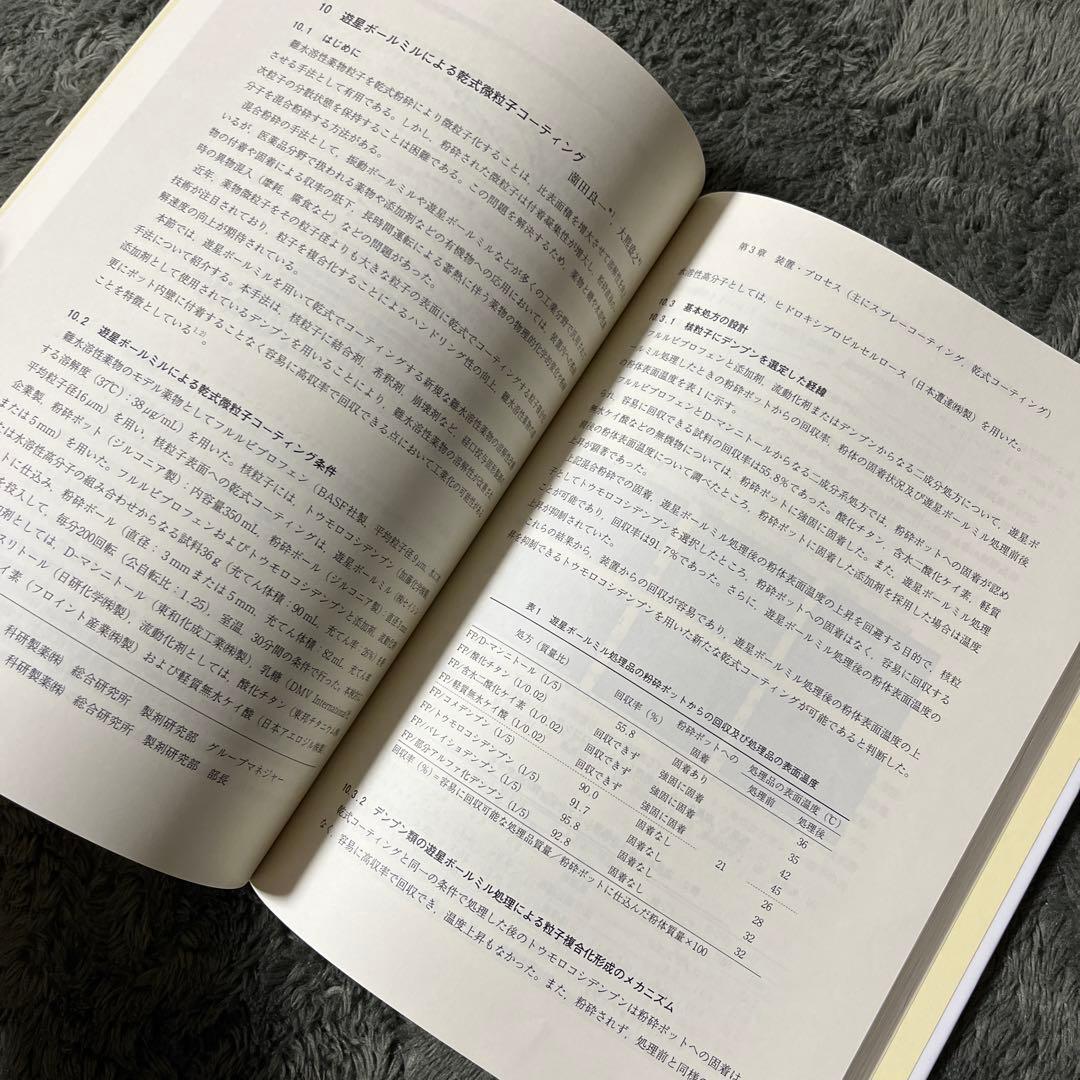 10 遊星ボールミルによる乾式微粒子コーティング
薗田良一*1, 大熊
10.1 はじめに
難水溶性薬物粒子を乾式粉砕により微粒子化することは、比表面積を増大させて溶解性を
させる手法として有用である。しかし、粉砕された微粒子は付着凝集性が増大し、粉砕
次粒子の分散状態を保持することは困難である。この問題を解決するため、薬物と
分子を混合粉砕する方法がある。
混合粉砕の手法として、振動ボールミルや遊星ボールミルなどが多くの工業分野で
いるが、医薬品分野で扱われる薬物や添加剤などの有機物への応用においては、装置内への
物の付着や固着による収率の低下、長時間運転による蓄熱に伴う薬物の物理的化学的変化や
時の異物混入（摩耗、腐食など）などの問題があった。
近年、薬物微粒子をその粒子径よりも大きな粒子の表面に乾式でコーティングする
技術が注目されており、粒子を複合化することによるハンドリング性の向上、難水溶性薬物
解速度の向上が期待されている。
本節では、遊星ボールミルを用いて乾式でコーティングする新規な難水溶性薬物の溶解性
手法について紹介する。本手法は、核粒子に結合剤、希釈剤、崩壊剤など、経口投与
添加剤として使用されているデンプンを用いることにより、難水溶性薬物の溶解性が
更にポット内壁に付着することなく容易に高収率で回収できる点において工業化の可能性が
ことを特徴としている1,2)。
10.2 遊星ボールミルによる乾式微粒子コーティング条件
難水溶性薬物のモデル薬物としてフルルビプロフェン（BASF社製、平均粒子径
する溶解度（37℃）：38μg/mL）を用いた。核粒子には、トウモロコシデンプン（加藤化学
平均粒子径16μm）を用い、核粒子表面への乾式コーティングは、遊星ボールミル（
企業製、粉砕ポット（ジルコニア製）：内容量350mL、粉砕ボール（ジルコニア製）直径
または5mm）を用いた。フルルビプロフェンおよびトウモロコシデンプンと添加剤、流動化剤
たは水溶性高分子の組み合わせからなる試料36g（充てん体積：90mL、充てん率：26%）を
ットに仕込み、粉砕ボール（直径：3mmまたは5mm、充てん体積：82mL、充てん率
を投入して、毎分200回転（公自転比：1.25）、室温、30分間の条件で行った。
剤としては、D-マンニトール（東和化成工業㈱製）、乳糖（DMV International
スリトール（日研化学㈱製）、流動化剤としては、酸化チタン（東邦チタニウム
イ素（フロイント産業㈱製）および軽質無水ケイ酸（日本アエロジル㈱製
科研製薬㈱ 総合研究所 製剤研究部 グループマネジャー
科研製薬㈱ 総合研究所 製剤研究部 部長
第3章 装置・プロセス（主にスプレーコーティング、乾式コーティング）
水溶性高分子としては、ヒドロキシプロピルセルロース（日本曹達㈱製）を用いた。
10.3 基本処方の設計
10.3.1 核粒子にデンプンを選定した経緯
フルルビプロフェンと添加剤、流動化剤またはデンプンからなる二成分処方について、遊星ボ
ールミル処理したときの粉砕ポットからの回収率、粉体の固着状況及び遊星ボールミル処理前後
の粉体表面温度を表1に示す。
フルルビプロフェンとD-マンニトールからなる二成分系処方では、粉砕ポットへの固着が認め
られ、容易に回収できる試料の回収率は55.8%であった。酸化チタン、含水二酸化ケイ素、軽質
無水ケイ酸などの無機物については、粉砕ポットに強固に固着した。また、遊星ボールミル処理
前後の粉体表面温度について調べたところ、粉砕ポットに固着した添加剤を採用した場合は温度
上昇が顕著であった。
上記混合粉砕での固着、遊星ボールミル処理後の粉体表面温度の上昇を回避する目的で、核粒
子としてトウモロコシデンプンを選択したところ、粉砕ポットへの固着はなく、容易に回収する
ことが可能であり、回収率は91.7%であった。さらに、遊星ボールミル処理後の粉体表面温度の
上昇が抑制されていた。
これらの結果から、装置からの回収が容易であり、遊星ボールミル処理後の粉体表面温度の上
昇を抑制できるトウモロコシデンプンを用いた新たな乾式コーティングが可能であると判断した。
表1 遊星ボールミル処理品の粉砕ポットからの回収及び処理品の表面温度
処方（質量比） 回収率（%） 粉砕ポットへの固着 処理品の表面温度（℃）
処理前 処理後
FP/D-マンニトール（1/5） 55.8 固着あり 36
FP/酸化チタン（1/0.02） 回収できず 強固に固着 35
FP/含水二酸化ケイ素（1/0.02） 回収できず 強固に固着 42
FP/軽質無水ケイ酸（1/0.02） 回収できず 強固に固着 21 45
FP/コメデンプン（1/5） 90.0 固着なし 26
FP/トウモロコシデンプン（1/5） 91.7 固着なし 28
FP/バレイショデンプン（1/5） 95.8 固着なし 32
FP/部分アルファ化デンプン（1/5） 92.8 固着なし 32
回収率（%）＝容易に回収可能な処理品質量／粉砕ポットに仕込んだ粉体質量×100
10.3.2 デンプン類の遊星ボールミル処理による粒子複合化形成のメカニズム
乾式コーティングと同一の条件で処理した後のトウモロコシデンプンは粉砕ポットへの固着は
なく、容易に高収率で回収でき、温度上昇もなかった。また、粉砕されず、処理前と同様の